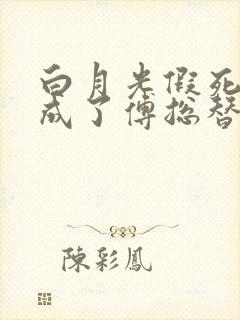 白月光假死
成了傅总替
陳彩鳳